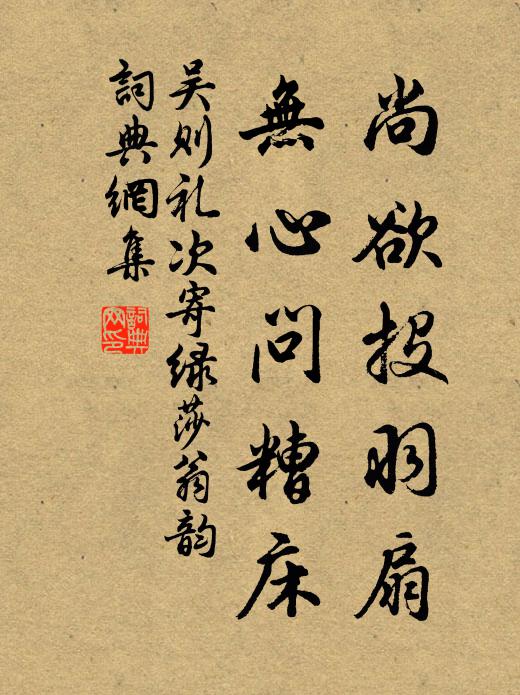 尚欲投羽扇
無心問糟床
吴则礼次寄绿莎翁韵
詞典網集
詞典网印